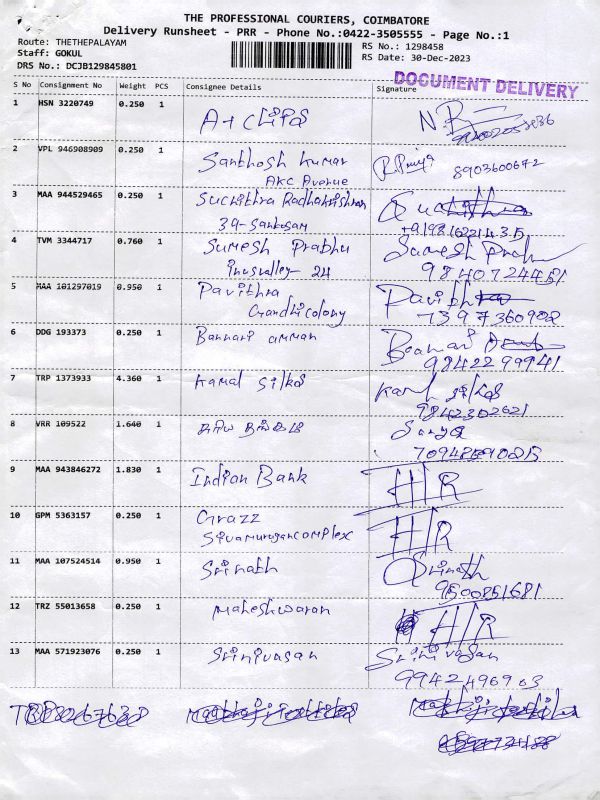 THE PROFESSIONAL COURIERS, COIMBATORE
Delivery Runsheet - PRR - Phone No.:0422-3505555 - Page No.:1
Route: THETHEPALAYAM RS No.: 1298458
Staff: GOKUL RS Date: 30-Dec-2023
DRS No.: DCJB129845801
DOCUMENT DELIVERY
S No Consignment No Weight PCS Consignee Details Signature
1 HSN 3220749 0.250 1
2 VPL 946908909 0.250 1 Santhosh Kumar
AKC Avenue
8903600672
3 MAA 944529465 0.250 1 Suchithra Radhakrishnan
39-Sankosam
4 TVM 3344717 0.760 1 Suresh Prabhu Suresh
24 9840724451
5 MAA 101297019 0.950 1 Pavithra
Gandhicolony 7397360902
6 DDG 193373 0.250 1 Bannari amman Bannari
9842299941
7 TRP 1373933 4.360 1 Kamal Silks
9842302621
8 VRR 109522 1.640 1 Surya
9 MAA 943846272 1.830 1 Indian Bank H/R
10 GPM 5363157 0.250 1 Grazz H/R
Sivamurugancomplex
11 MAA 107524514 0.950 1 Srinath Srinath
9500851681
12 TRZ 55013658 0.250 1 Maheshwaran H/R
13 MAA 571923076 0.250 1 Srinivasan Srinivasan
9942496963